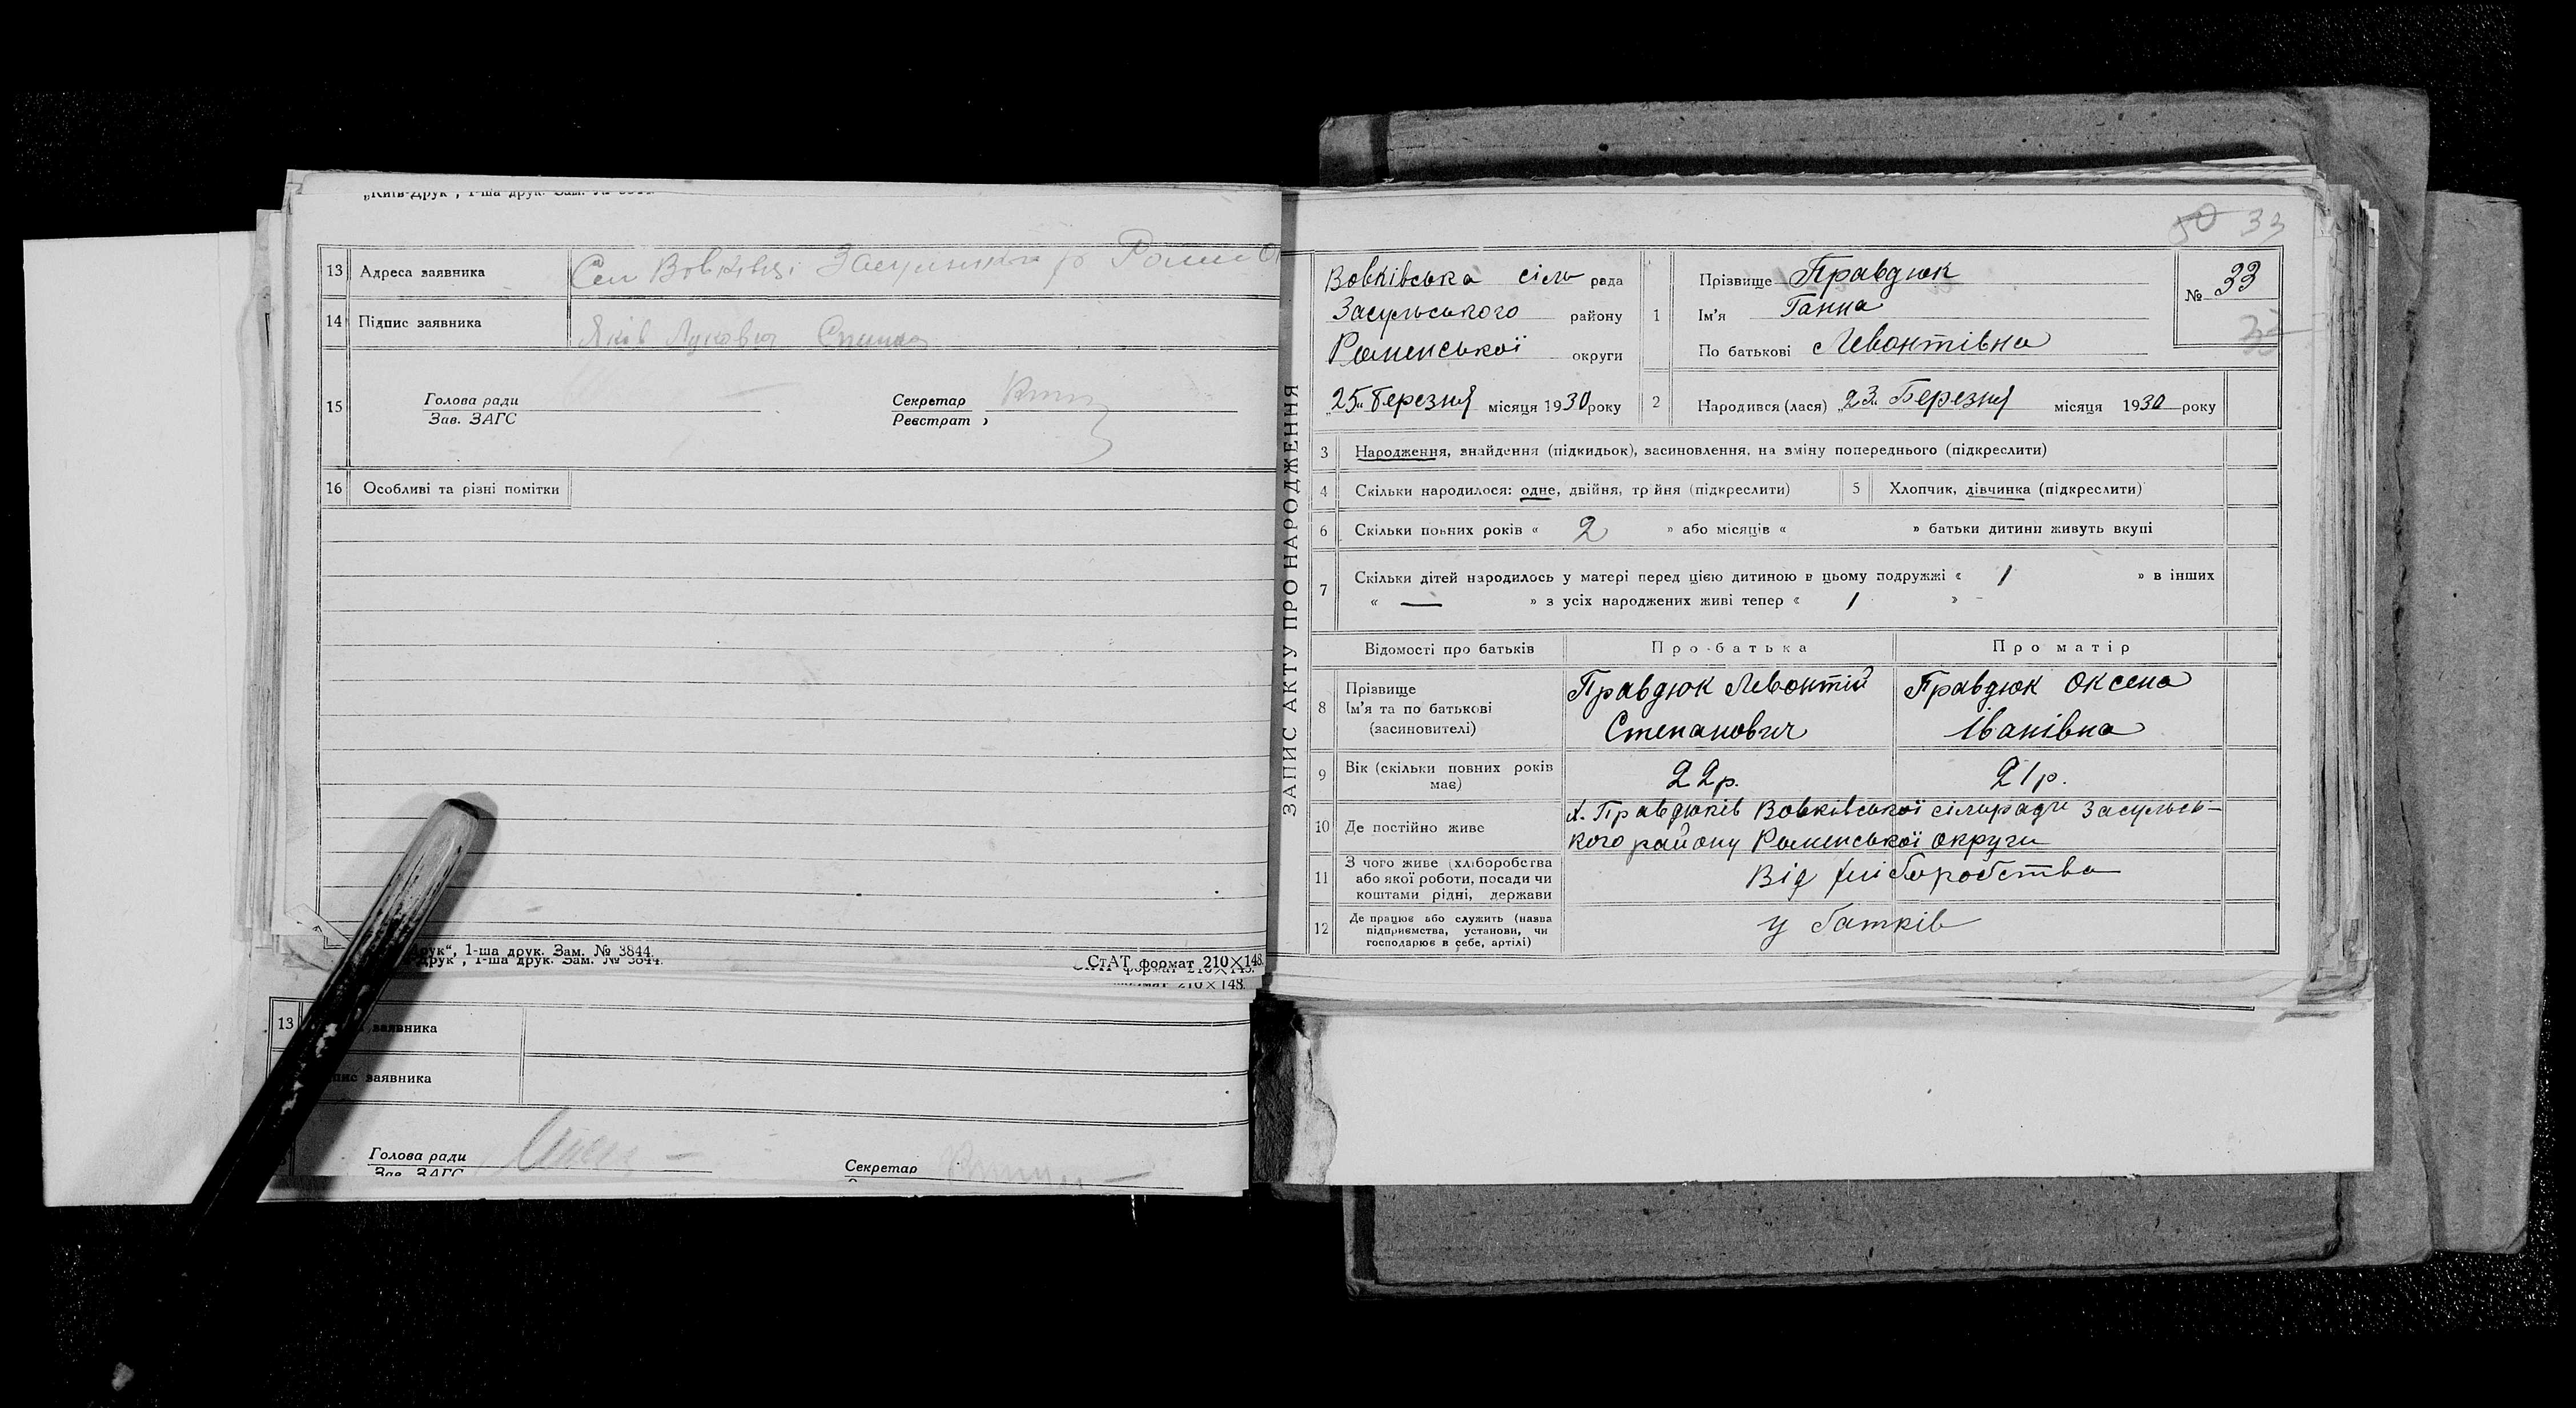 „Київ-Друк", 1-ша друк. Зам. № 3844.
13 Адреса заявника Сел Вовківці Засульського р Ромен
14 Підпис заявника Яків Лукович
15 Голова ради
Зав. ЗАГС
Секретар
Реєстрат
16 Особливі та різні помітки
Друк", 1-ша друк. Зам. № 3844.
друк", 1-ша друк. Зам. № 3844.
СтАТ формат 210×148.
формат 210×148.
формат 210×148.
13 заявника
заявника
Голова ради
Зав. ЗАГС
Секретар
ЗАПИС АКТУ ПРО НАРОДЖЕННЯ
50 33
Вовківська сіль рада
Засульського району
Роменської округи
„25" березня місяця 1930 року
1 Прізвище Правдюк
Ім'я Ганна
По батькові Левонтівна
№ 33
2 Народився (лася) „23" Березня місяця 1930 року
3 Народження, знайдення (підкидьок), засиновлення, на зміну попереднього (підкреслити)
4 Скільки народилося: одне, двійня, трійня (підкреслити)
5 Хлопчик, дівчинка (підкреслити)
6 Скільки повних років « 2 » або місяців « » батьки дитини живуть вкупі
7 Скільки дітей народилось у матері перед цією дитиною в цьому подружжі « 1 » в інших
« — » з усіх народжених живі тепер « 1 »
Відомості про батьків Про батька Про матір
8 Прізвище
Ім'я та по батькові
(засиновителі)
Правдюк Левонтій
Степанович
Правдюк Оксена
Іванівна
9 Вік (скільки повних років
має)
22 р. 21 р.
10 Де постійно живе
х. Правдюків Вовківської сільради Засульсь-
кого району Роменської округи
11 З чого живе (хліборобства
або якої роботи, посади чи
коштами рідні, держави
Від хліборобства
12 Де працює або служить (назва
підприємства, установи, чи
господарює в себе, артілі)
у батків